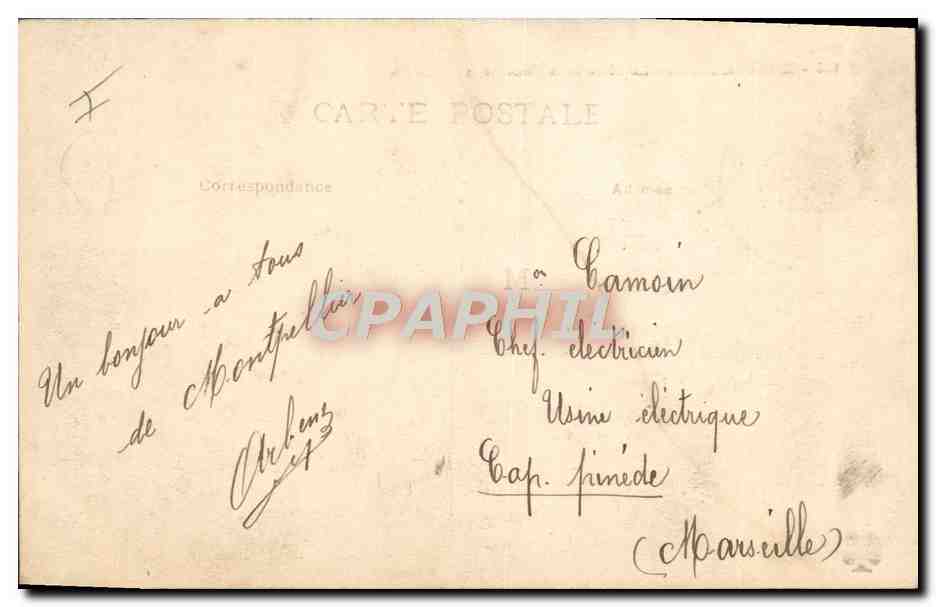 CARTE POSTALE
Correspondance
Un bonjour a tous
de Montpellier
Arbenz
Mr Camoin
Chef. électricien
Usine éléctrique
Cap. pinéde
(Marseille)
CPAPHIL